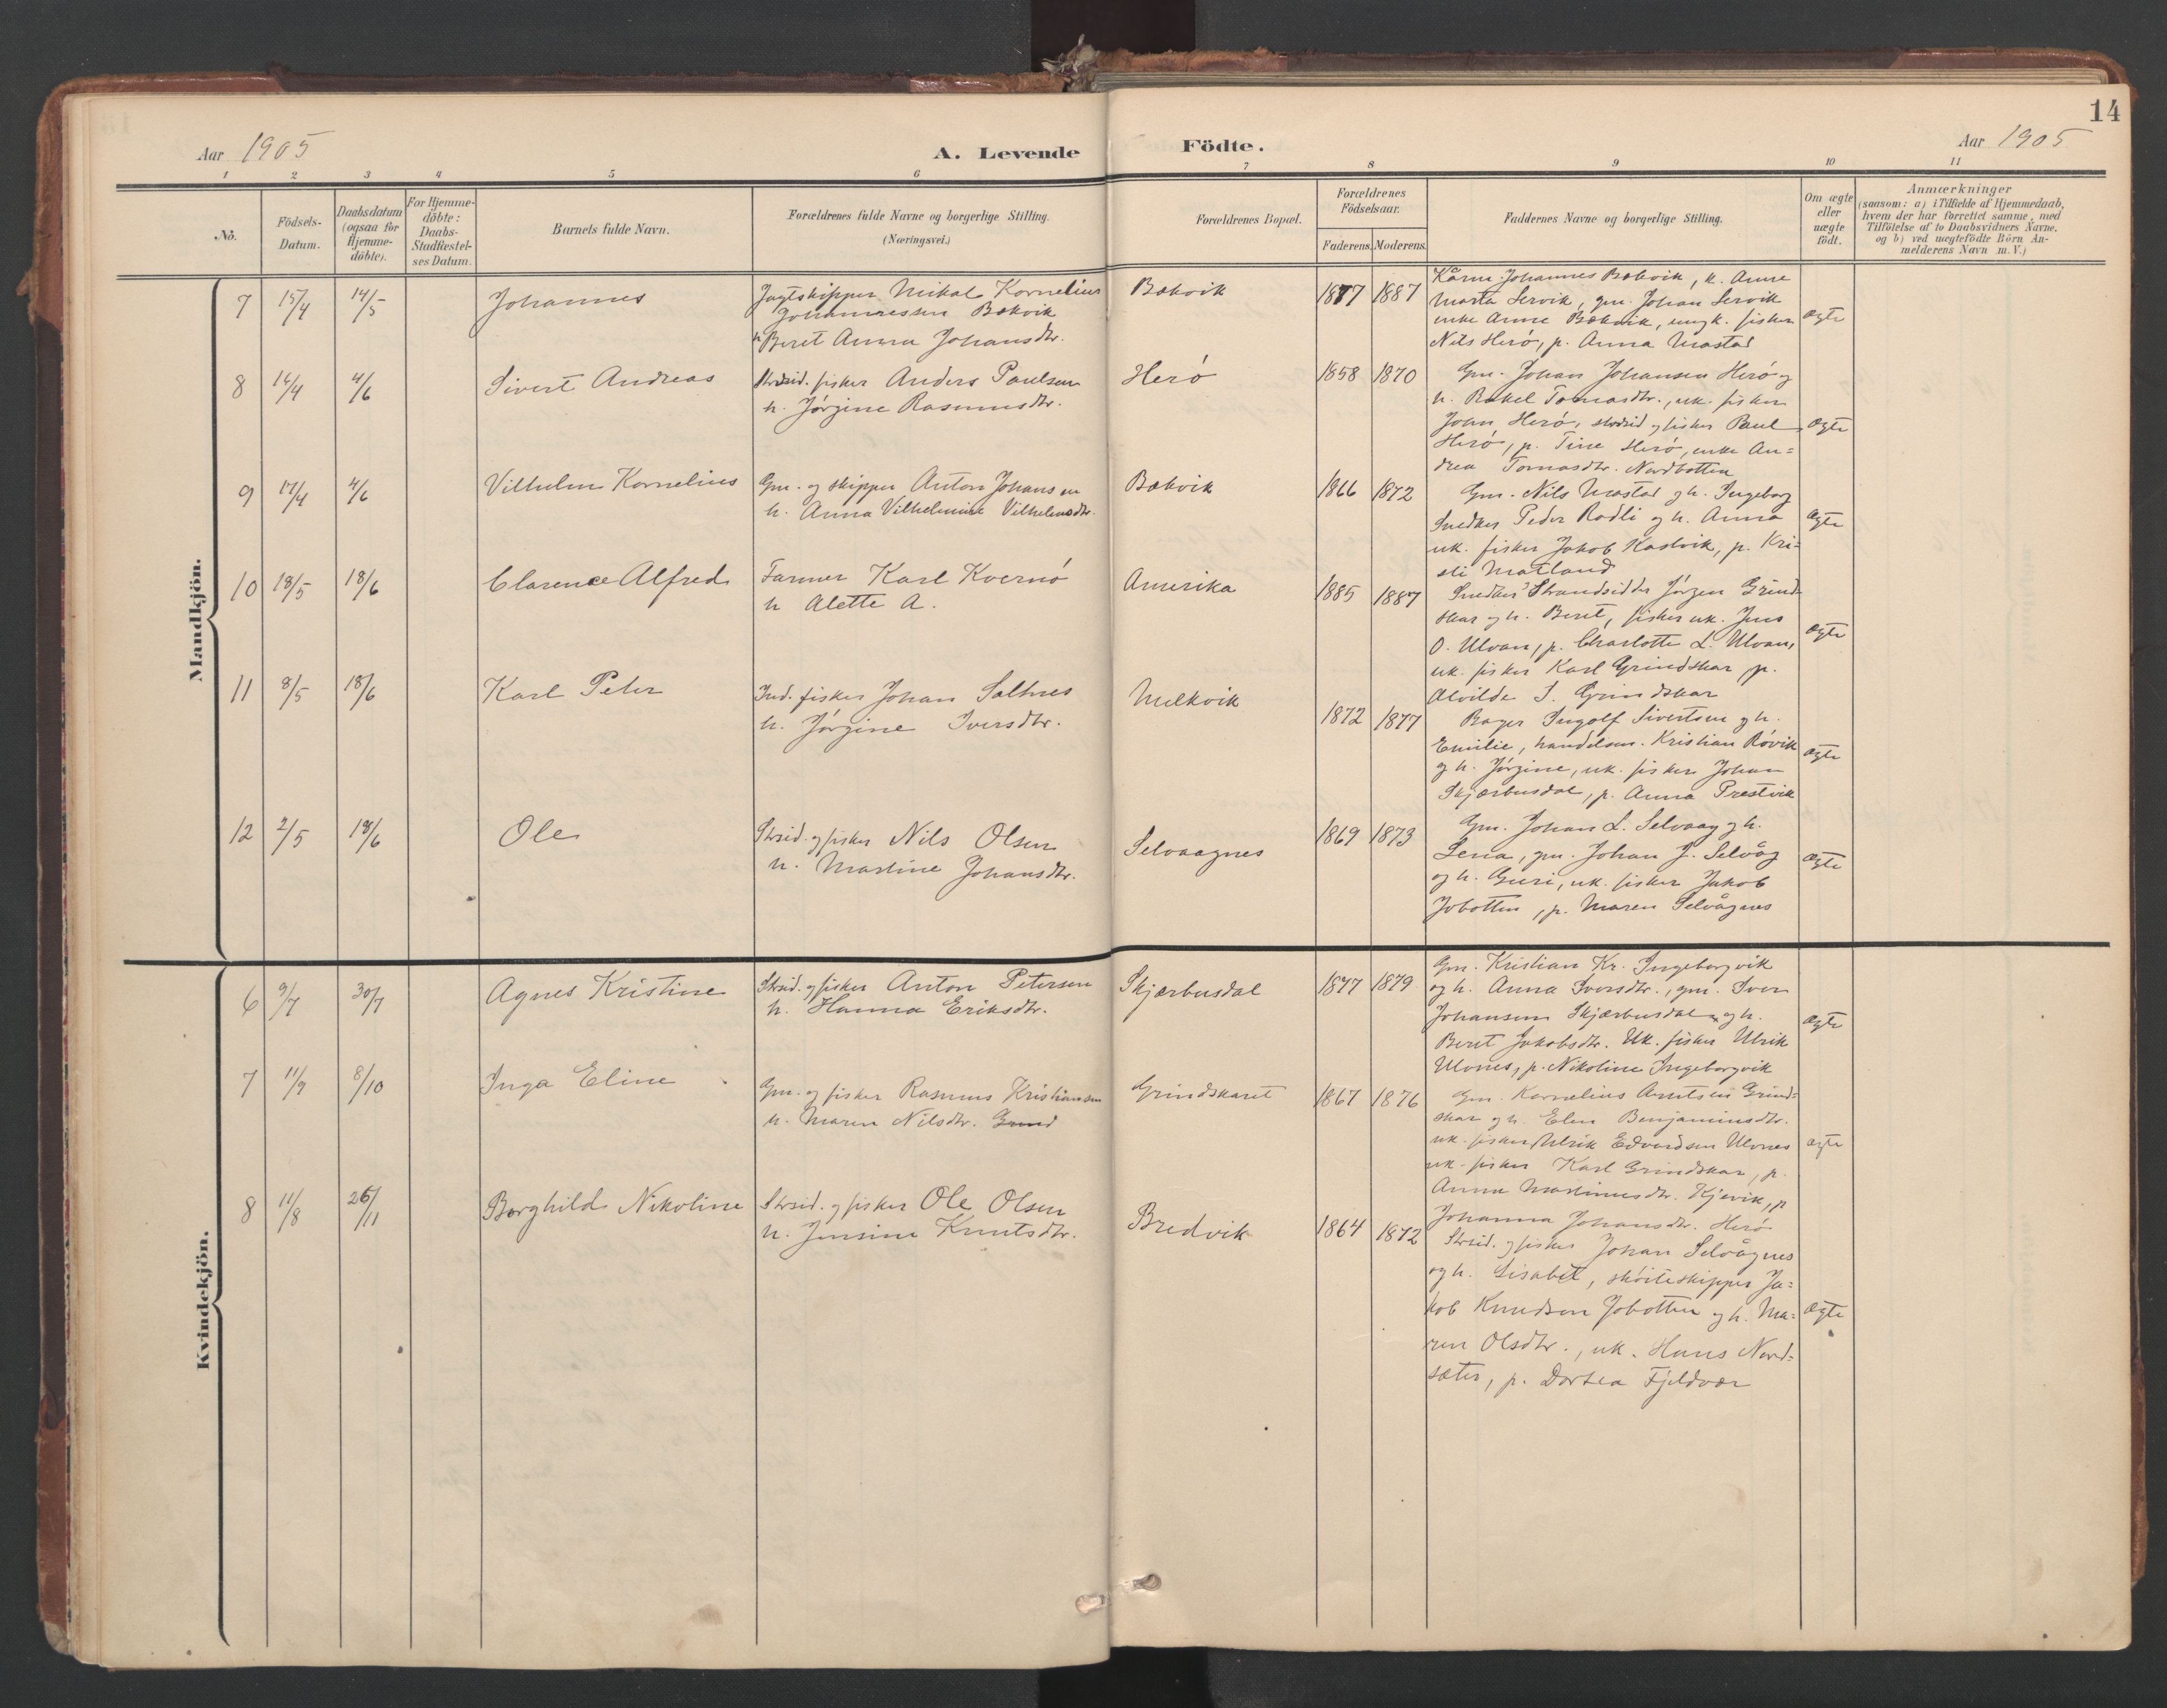 14
Aar 1905
A. Levende Födte.
Aar 1905
1 2 3 4 5 6 7 8 9 10 11
No.
Födsels-
Datum.
Daabsdatum
(ogsaa for
Hjemme-
döbte).
For Hjemme-
döbte:
Daabs-
Stadfæstel-
ses Datum.
Barnets fulde Navn.
Forældrenes fulde Navne og borgerlige Stilling.
(Næringsvei.)
Forældrenes Bopæl.
Forældrenes
Födselsaar.
Faderens. Moderens.
Faddernes Navne og borgerlige Stilling.
Om ægte
eller
uægte
födt.
Anmærkninger
(saasom: a) i Tilfælde af Hjemmedaab,
hvem der har forrettet samme, med
Tilföielse af to Daabsvidners Navne,
og b) ved uægtefödte Börn An-
melderens Navn m. V.)
Mandkjön.
7 15/4 14/5 Johannes
Jagtskipper Mikal Kornelius
Johannessen Bækvik
h Beret Anna Johansdtr.
Bækvik 1877 1887
Kårm. Johannes Bækvik, k. Anne
Marta Servik, gm. Johan Servik
enke Anne Bækvik, ungk. fisker
Nils Herö, p. Anna Mastad
ægte
8 14/4 4/6 Sivert Andreas
Strdsid. fisker Anders Paulsen
h. Jörgine Rasmusdtr.
Herö 1858 1870
Gm. Johan Johansen Herö og
h. Rakel Tomasdtr., uk. fisker
Johan Herö, strdsid og fisker Paul
Herö, p. Tine Herö, enke An=
drea Tomasdtr. Nordbotten
ægte
9 17/4 4/6 Vilhelm Kornelius
Gm. og skipper Anton Johansen
h. Anna Vilhelmine Vilhelmsdtr.
Bækvik 1866 1872
Gm. Nils Mastad og h. Ingeborg
Snedker Peder Rodli og h. Anna
uk. fisker Jakob Kastvik, p. Kri=
sti Matland
ægte
10 18/5 18/6 Clarence Alfred
Farmer Karl Kvernö
h Alette A.
Amerika 1885 1887
Snedker Strandsidder Jörgen Grind
skar og h. Beret, fisker uk. Jens
O. Ulvan, p. Charlotte L. Ulvan,
uk. fisker Karl Grindskar p.
Alvilde J. Grindskar
ægte
11 8/5 18/6 Karl Peter
Ind. fisker Johan Saltnes
h. Jörgine Iversdtr.
Melkvik 1872 1877
Bager Ingolf Sivertsen og h.
Emilie, handelsm. Kristian Rövik
og h. Jörgine, uk. fisker Johan
Skjærbusdal, p. Anna Prestvik
ægte
12 2/5 18/6 Ole
Strsid. og fisker Nils Olsen
h. Martine Johansdtr.
Selvaagnes 1869 1873
Gm. Johan L. Selvaag og h.
Lena, gm. Johan J. Selvåg
og h. Guri, uk. fisker Jakob
Jobotten, p. Maren Selvågnes
ægte
Kvindekjön.
6 9/7 30/7 Agnes Kristine
Strsid. og fisker Anton Petersen
h. Hanna Eriksdtr.
Skjærbusdal 1877 1879
Gm. Kristian Kr. Ingeborgvik
og h. Anna Iversdtr., gm. Iver
Johansen Skjærbusdal og h.
Beret Jakobsdtr. Uk. fisker Ulrik
Ulvnes, p. Nikoline Ingeborgvik
ægte
7 11/9 8/10 Inga Eline
Gm. og fisker Rasmus Kristiansen
h. Maren Nilsdtr. Grind
Grindskaret 1867 1876
Gm. Kornelius Arntsen Grind=
skar og h. Elen Benjaminsdtr.
uk. fisker Ulrik Edvardsen Ulvnes
uk. fisker Karl Grindskar, p.
Anna Martinusdtr. Kjevik, p
Johanna Johansdtr. Herö
ægte
8 11/8 26/11 Borghild Nikoline
Strsid. og fisker Ole Olsen
h. Jensine Knutsdtr.
Bredvik 1864 1872
Strsid. og fisker Johan Selvågnes
og h. Lisabet, sköiteskipper Ja=
kob Knudsen Jobotten og h. Ma=
ren Olsdtr., uk. Hans Nord=
sæter, p. Dortea Fjeldvær
ægte